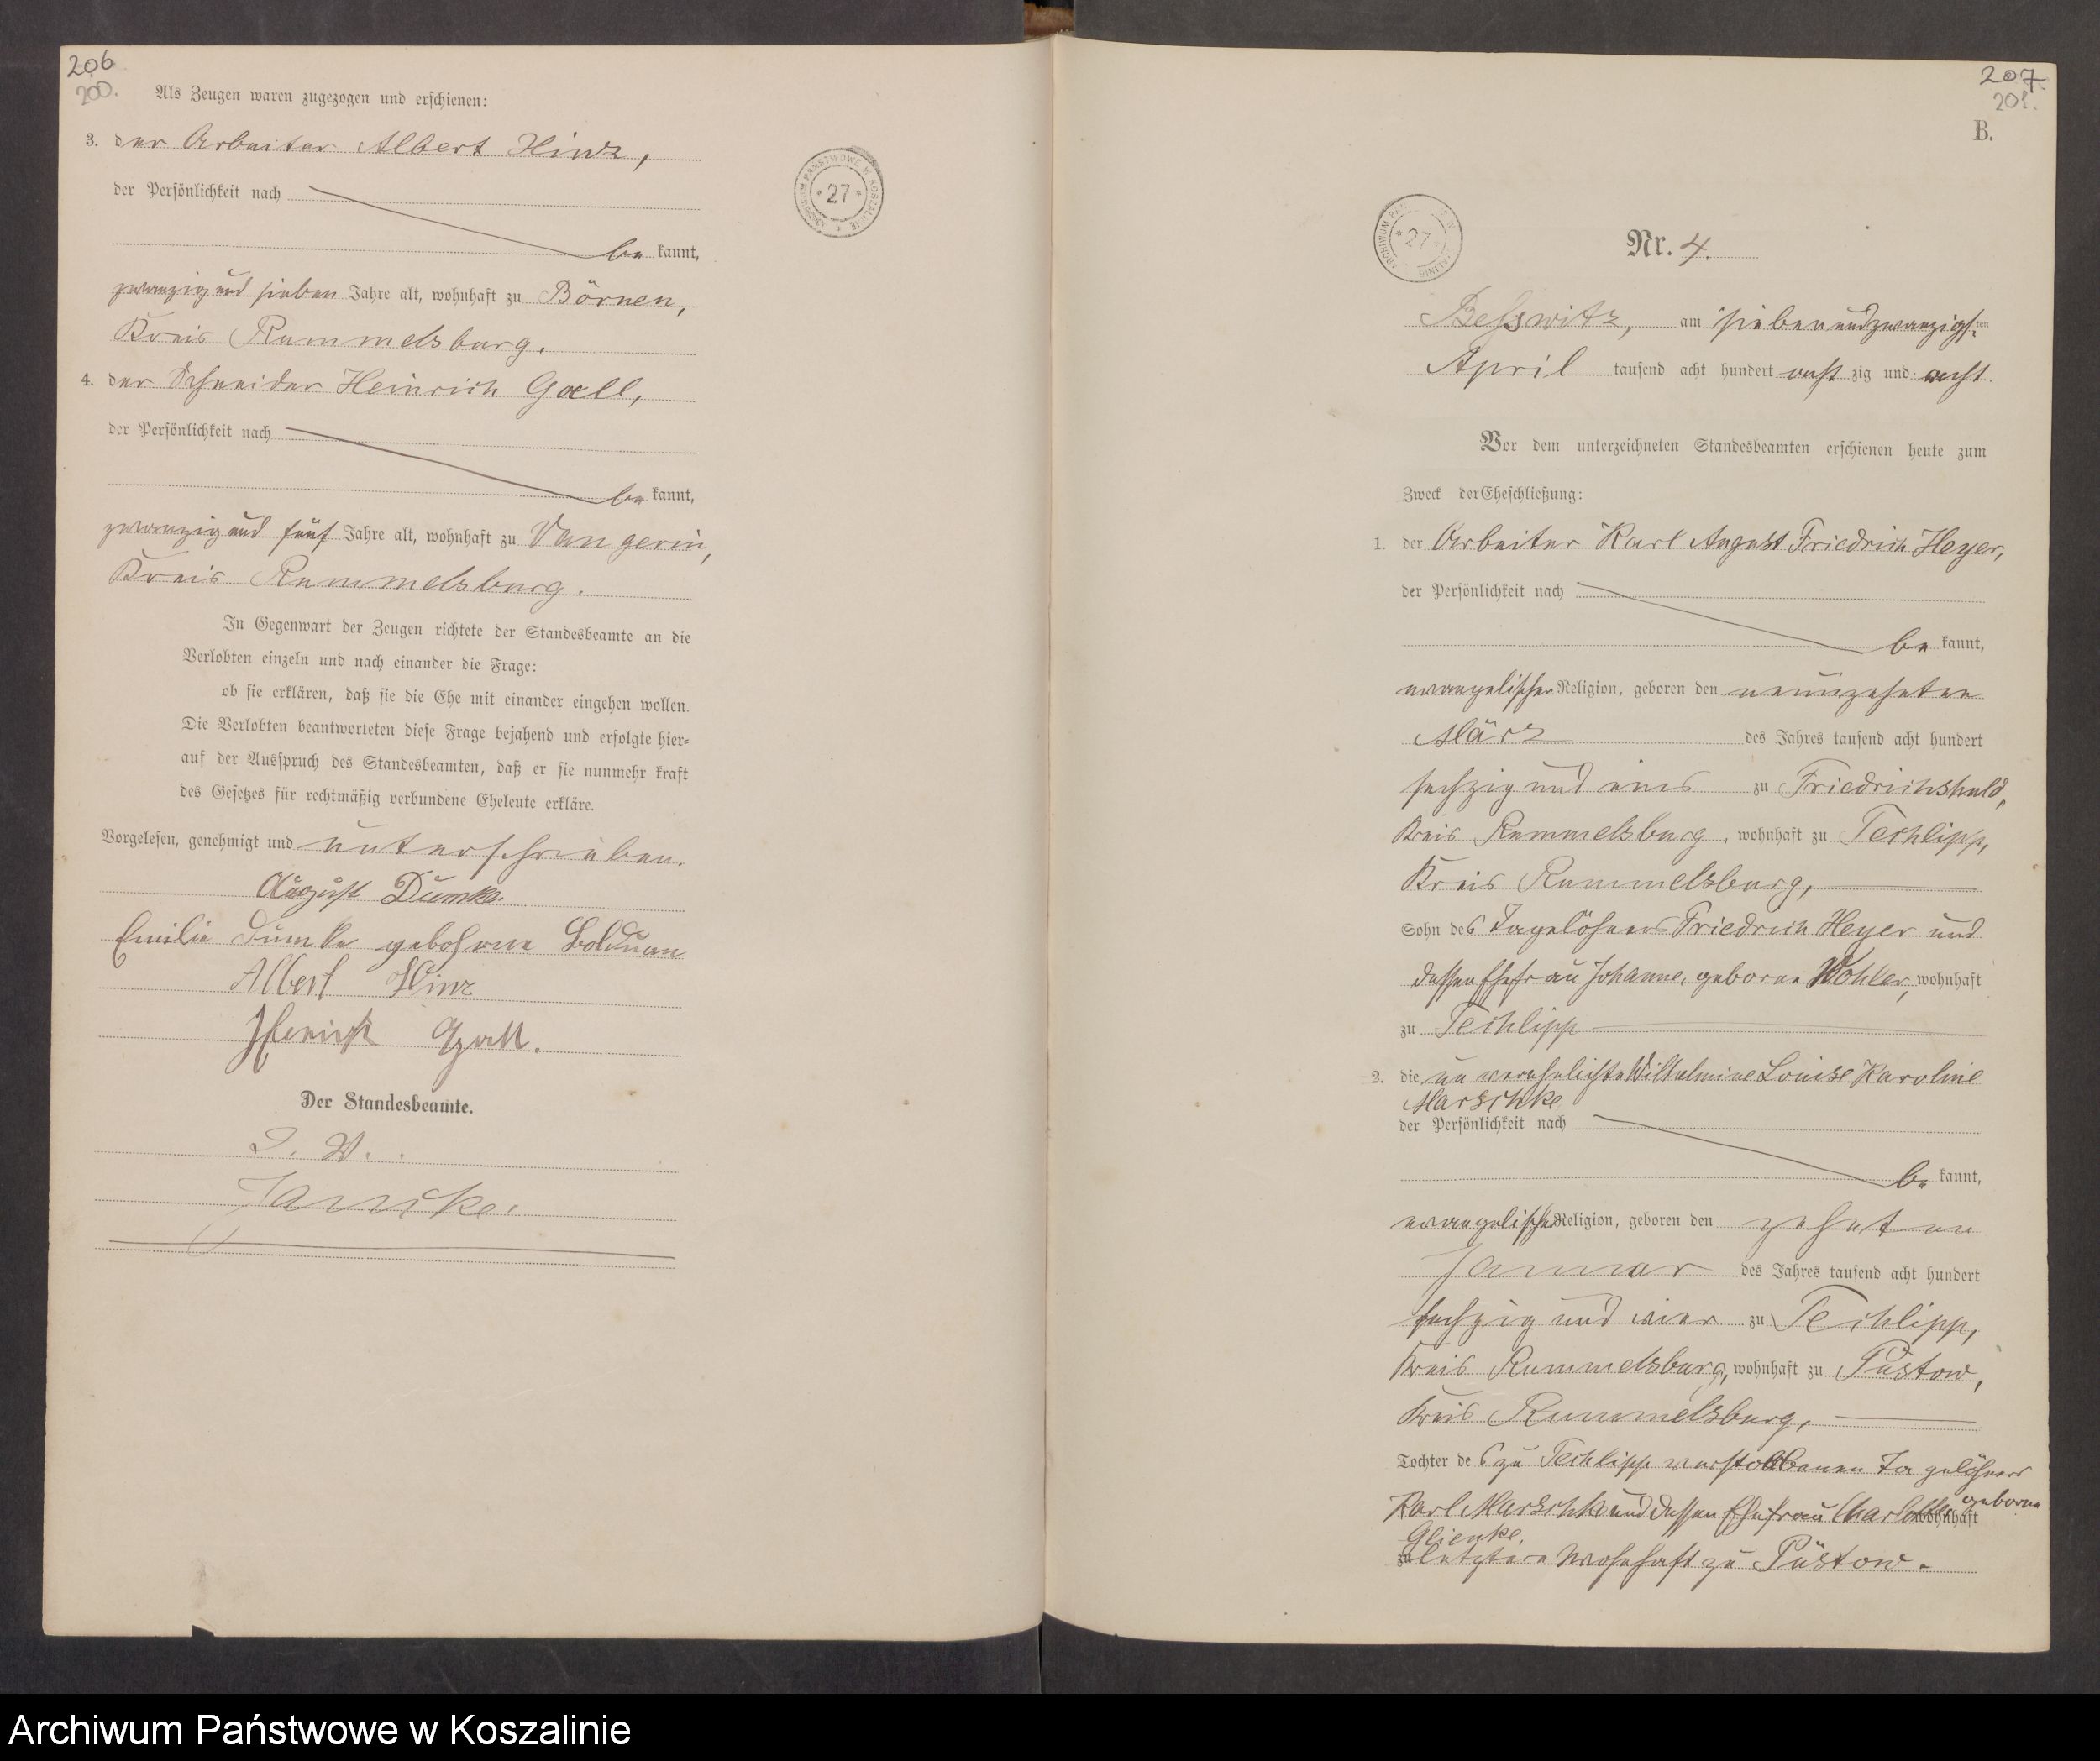 206
200.
Als Zeugen waren zugezogen und erschienen:
3. der Arbeiter Albert Hinz,
der Persönlichkeit nach
be kannt,
zwanzig und sieben Jahre alt, wohnhaft zu Börnen,
Kreis Rummelsburg.
4. der Schneider Heinrich Gaell,
der Persönlichkeit nach
be kannt,
zwanzig und fünf Jahre alt, wohnhaft zu Vangerin,
Kreis Rummelsburg.
In Gegenwart der Zeugen richtete der Standesbeamte an die
Verlobten einzeln und nach einander die Frage:
ob sie erklären, daß sie die Ehe mit einander eingehen wollen.
Die Verlobten beantworteten diese Frage bejahend und erfolgte hier=
auf der Ausspruch des Standesbeamten, daß er sie nunmehr kraft
des Gesetzes für rechtmäßig verbundene Eheleute erkläre.
Vorgelesen, genehmigt und unterschrieben.
August Dumke.
Emilie Dumke gebohrne Bolduan
Albert Hinz
Henrich Gall.
Der Standesbeamte.
I. V.
Janncke.
ARCHIWUM PAŃSTWOWE W KOSZALINIE
* 27 *
207
201.
B.
ARCHIWUM PAŃ W ALINIE
* 27 *
Nr. 4.
Besswitz, am siebenundzwanzigsten
April tausend acht hundert acht zig und acht.
Vor dem unterzeichneten Standesbeamten erschienen heute zum
Zweck der Eheschließung:
1. der Arbeiter Karl August Friedrich Heyer,
der Persönlichkeit nach
be kannt,
evangelischer Religion, geboren den neunzehnten
März des Jahres tausend acht hundert
sechzig und eins zu Friedrichshuld,
Kreis Rummelsburg, wohnhaft zu Techlipp,
Kreis Rummelsburg,
Sohn des Tagelöhners Friedrich Heyer und
dessen Ehefrau Johanne, geborne Wohler, wohnhaft
zu Techlipp
2. die unverehelichte Wilhelmine Louise Karoline
Marschke
der Persönlichkeit nach
be kannt,
evangelischer Religion, geboren den zehnten
Januar des Jahres tausend acht hundert
sechzig und vier zu Techlipp,
Kreis Rummelsburg, wohnhaft zu Püstow,
Kreis Rummelsburg,
Tochter des zu Techlipp verstorbenen Tagelöhners
Karl Marschke und dessen Ehefrau Charlotte geborne wohnhaft
Glienke,
zu letztere wohnhaft zu Püstow.
Archiwum Państwowe w Koszalinie